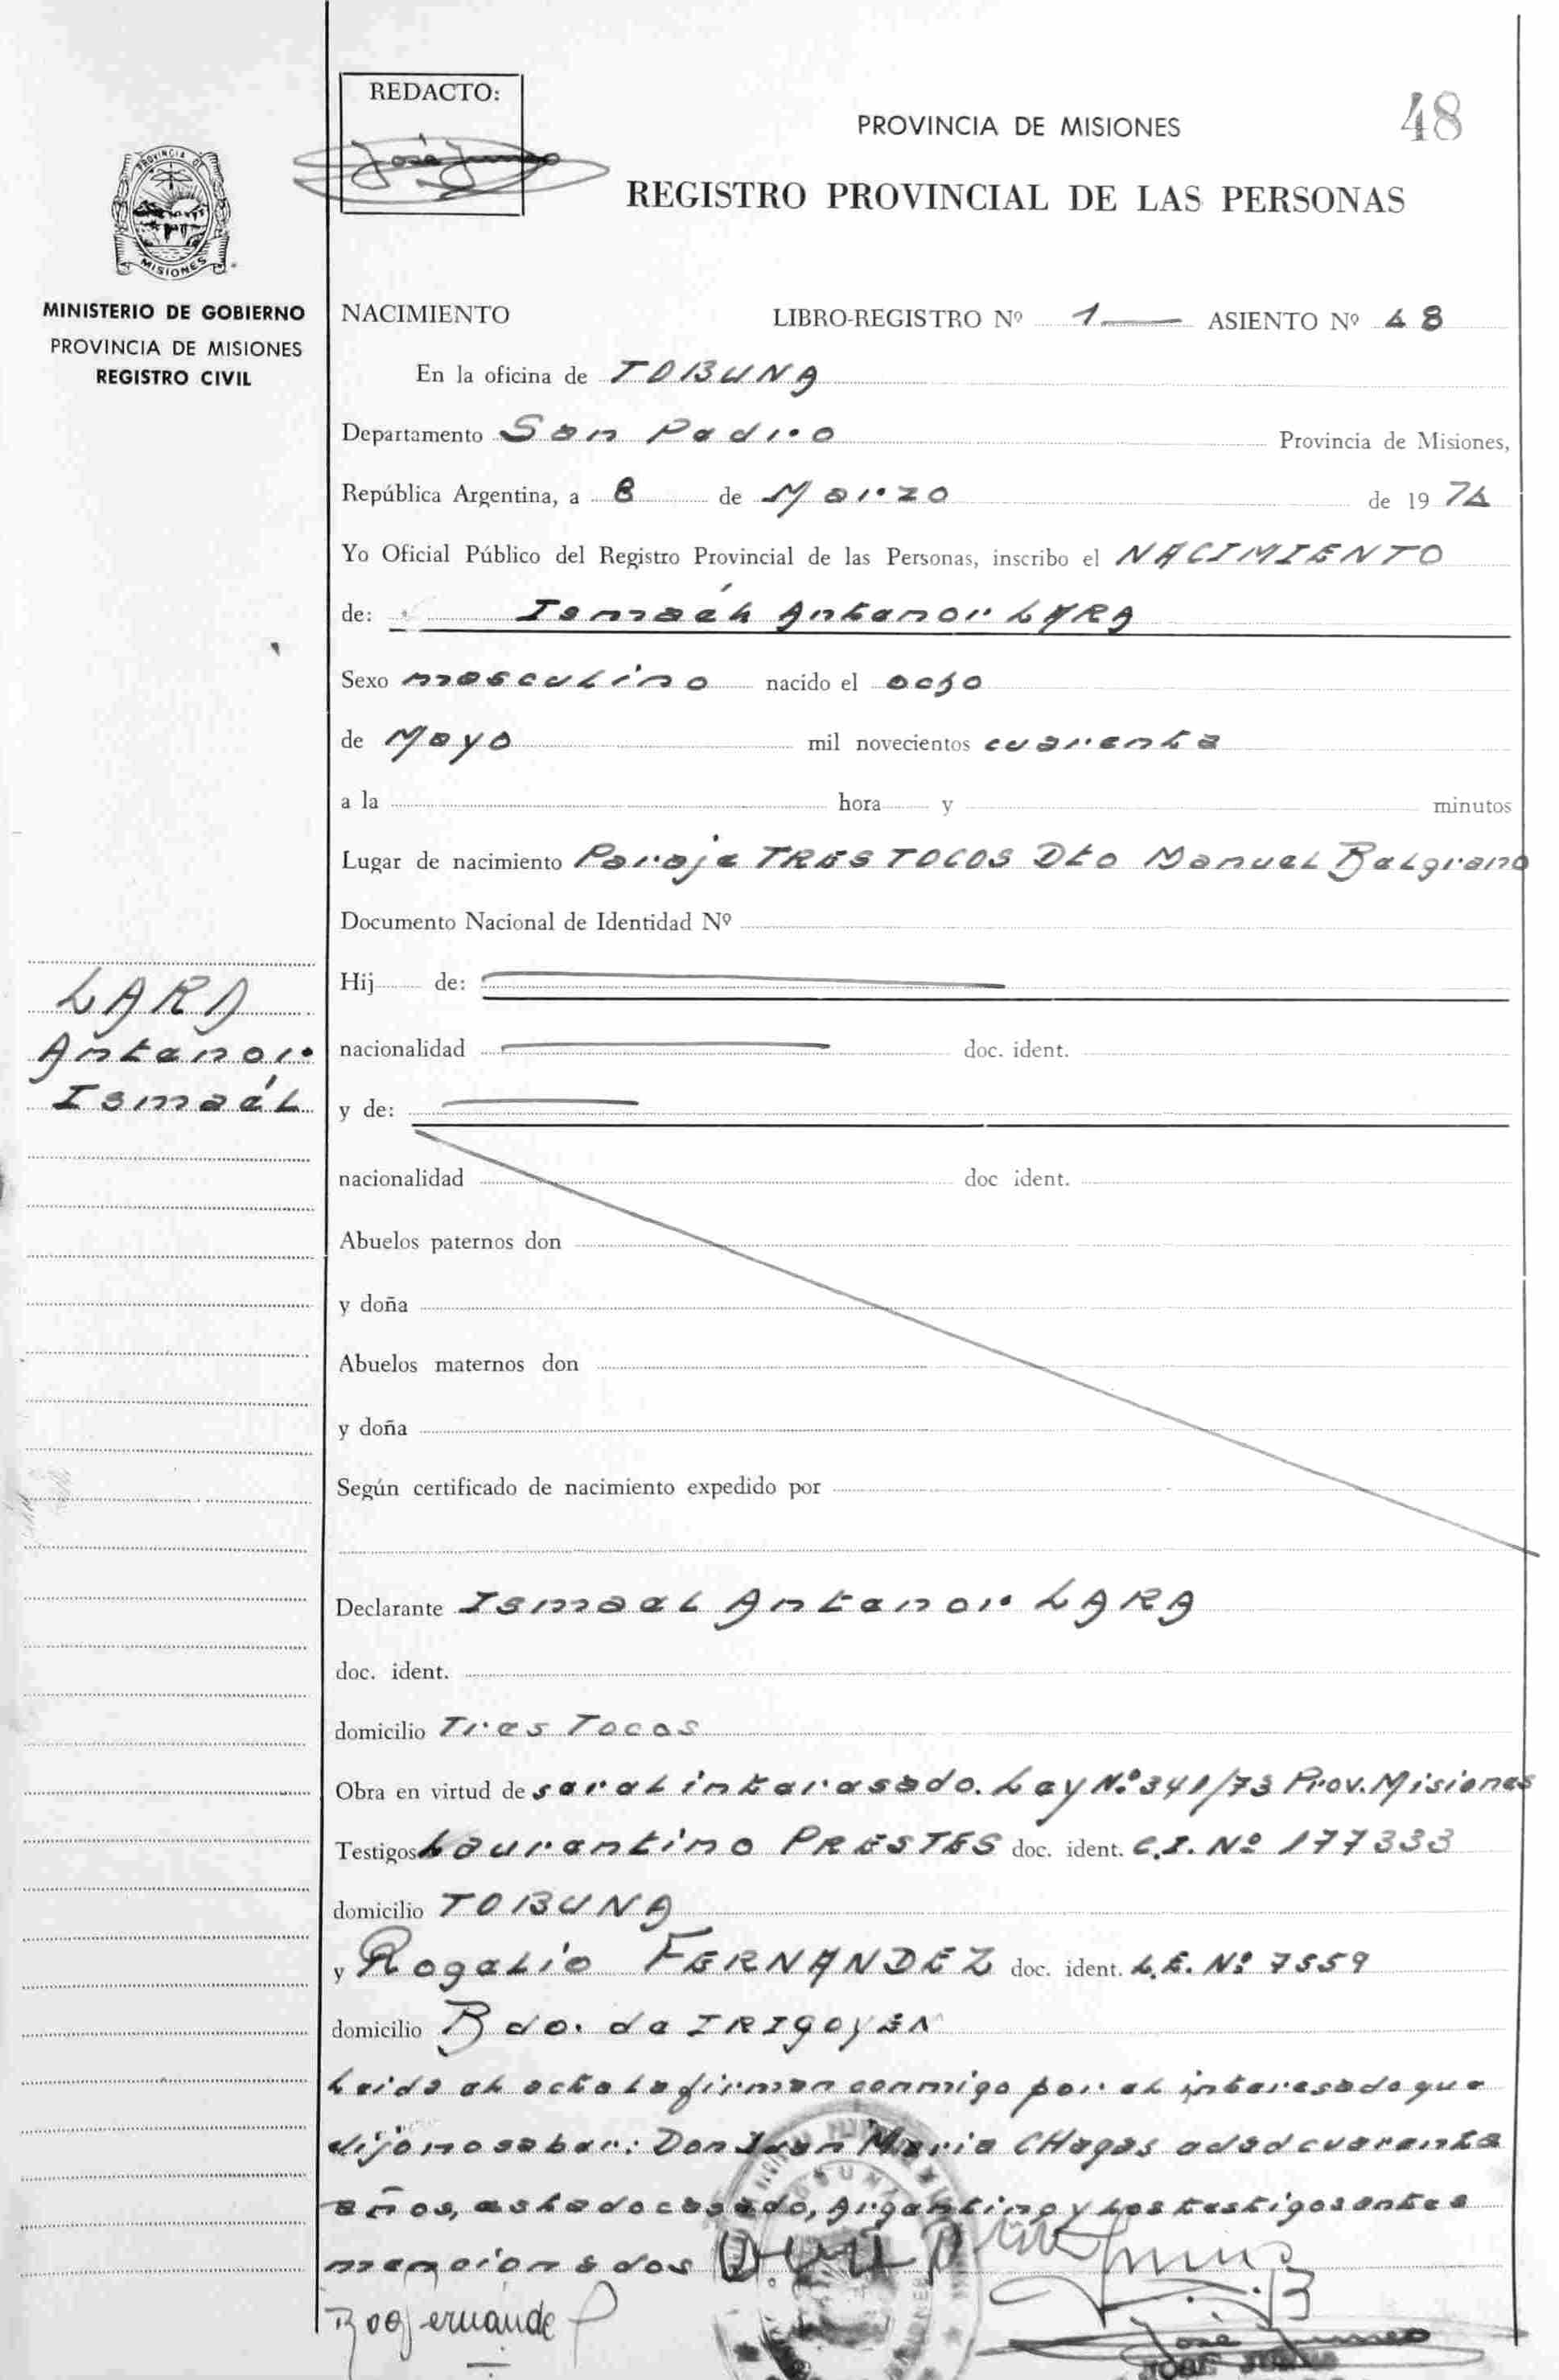 REDACTO:
José Juneo
PROVINCIA DE MISIONES
48
REGISTRO PROVINCIAL DE LAS PERSONAS
PROVINCIA DE
MISIONES
MINISTERIO DE GOBIERNO
PROVINCIA DE MISIONES
REGISTRO CIVIL
NACIMIENTO LIBRO-REGISTRO Nº 1 ASIENTO Nº 48
En la oficina de TOBUNA
Departamento San Pedro Provincia de Misiones,
República Argentina, a 8 de Marzo de 1974
Yo Oficial Público del Registro Provincial de las Personas, inscribo el NACIMIENTO
de: Ismaél Antenor LARA
Sexo masculino nacido el ocho
de Mayo mil novecientos cuarenta
a la hora y minutos
Lugar de nacimiento Paraje TRES TOCOS Dto Manuel Belgrano
Documento Nacional de Identidad Nº
Hij de:
nacionalidad doc. ident.
y de:
nacionalidad doc ident.
Abuelos paternos don
y doña
Abuelos maternos don
y doña
Según certificado de nacimiento expedido por
LARA
Antenor
Ismaél
Declarante Ismael Antenor LARA
doc. ident.
domicilio Tres Tocos
Obra en virtud de ser el interesado. Ley Nº 341/73 Prov. Misiones
Testigos Laurentino PRESTES doc. ident. C.I. Nº 177333
domicilio TOBUNA
y Rogelio FERNANDEZ doc. ident. L.E. Nº 7559
domicilio Bdo. de IRIGOYEN
Leida el acta la firman conmigo por el interesado que
dijo no saber: Don Juan Maria CHagas edad cuarenta
años, estado casado, Argentino y los testigos antes
mencionados